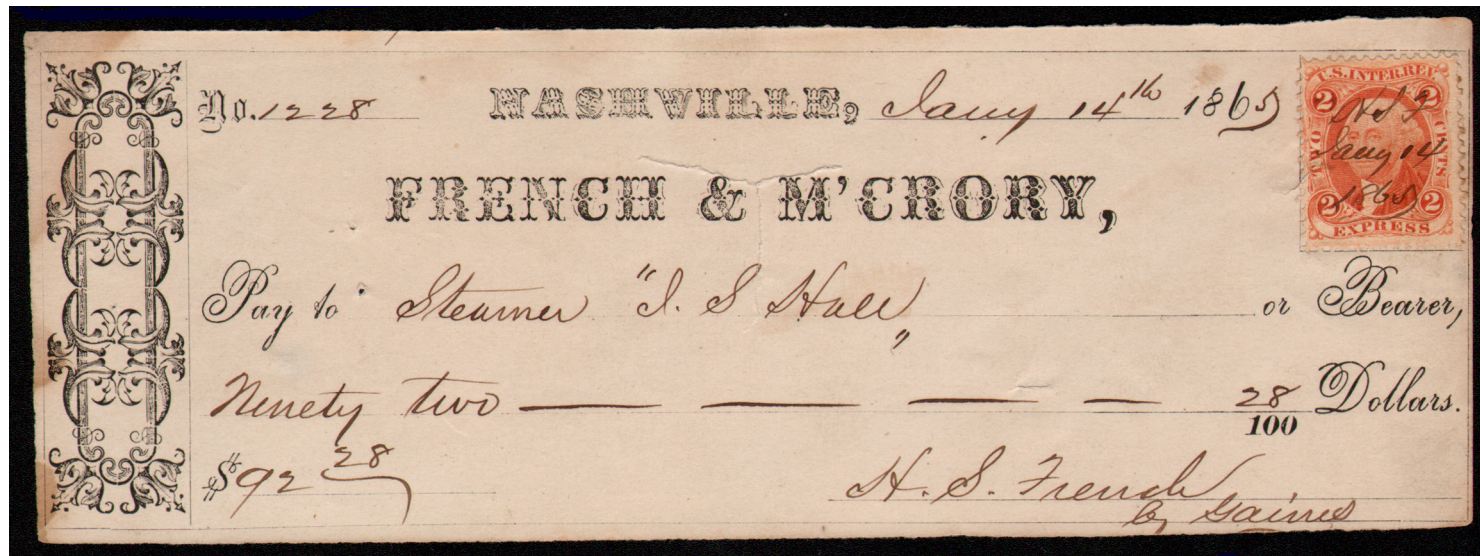 No. 1228 NASHVILLE, Jany 14th 1865
FRENCH & M'CRORY,
Pay to Steamer "J. S Hall" or Bearer,
Ninety two — — — — 28/100 Dollars.
$92 28
H. S. French
by Gaines
U.S. INTER. REV.
2 2
TWO CENTS
Jany 14
1865
2 2
EXPRESS